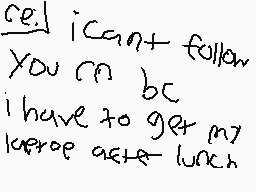 re.] i can+ follow
you rn bc
i have to get my
after lunch